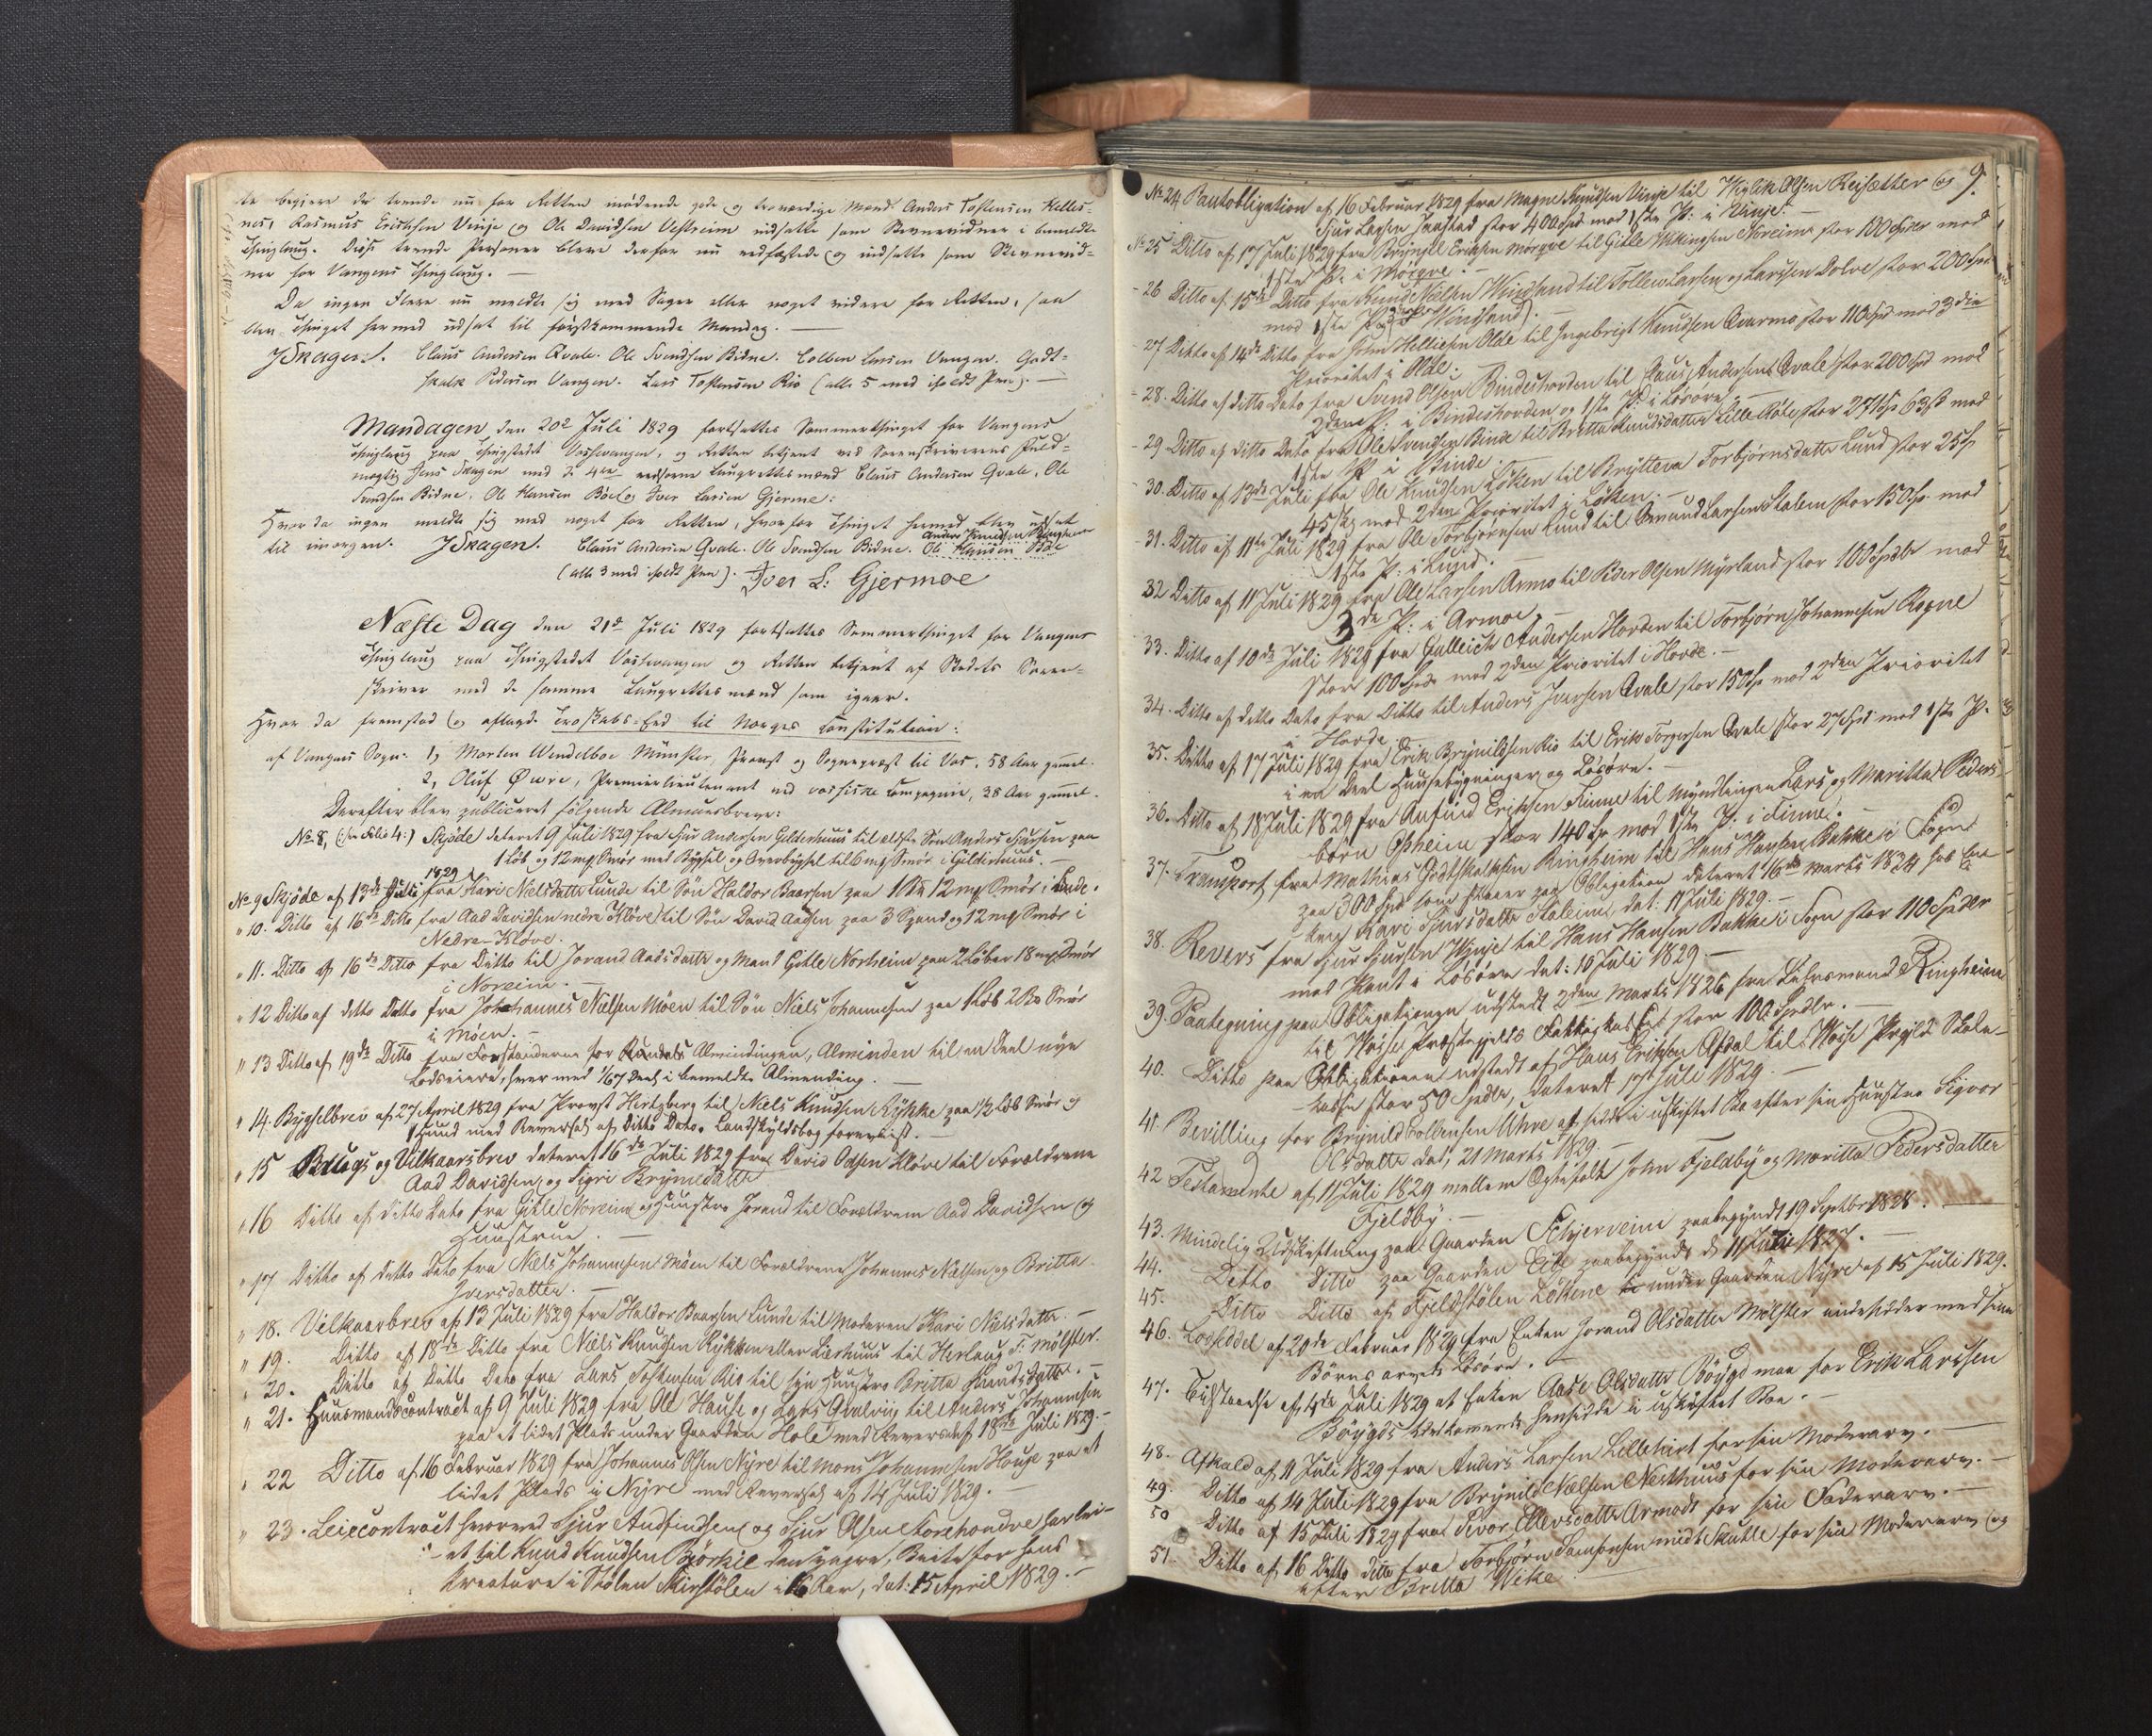 te begjere de trende nu for Retten mødende gode og troværdige Mænd Anders Tostensen Helles-
nes, Rasmus Erichsen Vinje og Ole Davidsen Vestreim udsatte som Stevnevidner i bemeldte
Thinglaug. Disse trende Personer bleve derfor nu edfæstede og indsatte som Stevnevid-
ner for Vangens Thinglaug. —
Da ingen Flere nu meldte sig med Sager eller noget videre for Retten, saa
blev Thinget hermed udsat til førstkommende Mandag. —
JSkagen. Claus Andersen Qvale. Ole Svendsen Bidne. Colben Larsen Vangen. Godt-
skalk Pedersen Vangen. Lars Tostensen Rio (alle 5 med iholdt Pen). —
Mandagen den 20de Juli 1829 fortsattes Sommerthinget for Vangens
Thinglaug paa Thingstedet Vossevangen, og Retten betjent ved Sorenskriverens Fuld-
mægtig Jens Skagen med de 4re eedsorne Laugrettesmænd Claus Andersen Qvale, Ole
Svendsen Bidne, Ole Hansen Böe og Iver Larsen Gjerme:
Hvor da ingen meldte sig med noget for Retten, hvorfor Thinget hermed blev udsat
til imorgen. JSkagen. Claus Andersen Qvale. Ole Svendsen Bidne. Ole Hansen Böe
(alle 3 med iholdt Pen). Iver L: Gjermoe
Næste Dag den 21de Juli 1829 fortsattes Sommerthinget for Vangens
Thinglaug paa Thingstedet Vossevangen og Retten betjent af Stedets Soren-
skriver med de samme Laugrettesmænd som igaar.
Hvor da fremstod og aflagde Troskabs-Eed til Norges Constitution:
af Vangens Sogn: 1, Morten Wendelboe Münster, Provst og Sognepræst til Vos, 58 Aar gammel.
2, Oluf Øwre, Premierlieutenant ved vossiske Compagnie, 38 Aar gammel.
Derefter blev publiceret følgende Almuesbreve:
No 8, (fra Folio 4:) Skjøde dateret 9 Juli 1829 fra Sjur Andersen Gilderhuus til ældste Søn Anders Sjursen paa
1 Løb og 12 mg Smør med Bygsel og Overbygsel til 6 mg Smør i Gilderhuus. —
No 9 Skjøde af 13de Juli 1829 fra Kari Nielsdatter Lunde til Søn Haldor Baarsen paa 1 12 mg Smør i Lunde.
" 10. Ditto af 16de Ditto fra Aad Davidsen nedre Kløve til Søn David Aadsen paa 3 Spand og 12 mg Smør i
Nedre-Kløve.
" 11. Ditto af 16de Ditto fra Ditto til Jorand Aadsdatter og Mand Gitle Norheim paa 2 Løber 18 mg Smør
i Noreim. —
" 12 Ditto af ditto Ditto fra Johannes Nielsen Møen til Søn Niels Johannesen paa 1 Løb 2 Smør
i Møen. —
" 13 Ditto af 19de Ditto fra Forstanderne for Almindingen, Alminden til en Deel nye
Lodseiere, hver med 1/67 Deel i bemeldte Alminding. —
" 14. Bygselbrev af 27 April 1829 fra Provst Hertzberg til Niels Knudsen Rykke paa 1/2 Løb Smør og
1 Huud med Reversal af Ditto Dato. Landskyldsbog foreviist. —
" 15 og Vilkaarsbrev dateret 16de Juli 1829 fra David Odsen Kløve til Forældrene
Aad Davidsen og Sigri Brynildatter
" 16 Ditto af Ditto Dato fra Gitle Noreim og Hustro Jorand til Forældrene Aad Davidsen og
Huustrue. —
" 17 Ditto af Ditto Dato fra Niels Johannesen Møen til Forældrene Johannes Nielsen og Britta
Iversdatter. —
" 18. Vilkaarbrev af 13 Juli 1829 fra Haldor Baarsen Lunde til Moderen Kari Nielsdatter. —
" 19. Ditto af 18de Ditto fra Niels Knudsen Rykken eller Lierhuus til Herlaug T. Mølster.
" 20. Ditto af Ditto Dato fra Lars Tostensen Rio til sin Huustro Britta Knudsdatter. —
" 21. Huusmandscontract af 9 Juli 1829 fra Ole Haufe og Lars til Anders Johannesen
paa et lidet Plads under Gaarden Hole med Revers af 18de Juli 1829. —
" 22 Ditto af 16 Februar 1829 fra Johannes Olsen Nyre til Mons Johannesen Houge paa et
lidet Plads i Nyre med Reversal af 14 Juli 1829. —
" 23. Leiecontract hvorved Sjur Andfindsen og Sjur Olsen har lei-
et til Knud Knudsen Bjørke Beite for hans
Kreature i Stølen i 16 Aar, dat: 15 April 1829. —
9.
No 24 Pantobligation af 16 Februar 1829 fra Magne Knudsen Vinje til Wiglik Olsen Reisætter og
Sjur Larsen Saastad stor 400 Spd med 1ste P: i Vinje. —
No 25 Ditto af 17 Juli 1829 fra Brynjel Eriksen Mørqve til Gitle Wikingsen Noreim stor 100 Spdlr med
1ste P: i Mørqve. —
- 26 Ditto af 15de Ditto fra Knud Nielsen Windsand til Tollew Larsen og Larssen Dolve stor 200 Spd
med 1ste P: i Windsand. —
- 27 Ditto af 14de Ditto fra John Helliesen Olde til Ingebrigt Knudsen Qvarme stor 110 Spd med 3die
Prioritet i Olde. —
- 28. Ditto af ditto Dato fra Svend Olsen Bindeshorden til Claus Andersen Qvale stor 200 Spd med
2den P: i Bindeshorden og 1ste P: i Løsøre. —
- 29 Ditto af ditto Dato fra Ole Svendsen Binde til Britta Knudsdatter Lille stor 271 Sp 63 s med
1ste P: i Binde.
- 30. Ditto af 13de Juli fra Ole Knudsen Løken til Bryttera Torbjørnsdatter Lund stor 25 Sp
45 s med 2den Prioritet i Løken. —
- 31. Ditto af 11te Juli 1829 fra Ole Torbjørnsen Lund til Amund Larsen Stalem stor 150 Sp med
1ste P: i Lund. —
32 Ditto af 11 Juli 1829 fra Ole Larsen Armo til Peder Olsen Myrland stor 100 Spdlr med
3de P: i Armoe. —
33. Ditto af 10de Juli 1829 fra Gulleich Andersen Horden til Torbjørn Johannesen Rogne
stor 100 Spd med 2den Prioritet i Horde. —
34. Ditto af ditto Dato fra Ditto til Anders Iversen Qvale stor 150 Sp med 2den Prioritet
i Horde. —
35. Ditto af 17 Juli 1829 fra Erik Brynildsen Rio til Erik Torgersen Qvale stor 27 Spd med 1ste P.
i en Deel Huusebygninger og Løsøre. —
36. Ditto af 18 Juli 1829 fra Anfind Eriksen Finne til Myndlingen Lars og Maritta Peders-
børn Opheim stor 140 Sp med 1ste P: i Finne.
37. Transport fra Mathias Godtskalksen Rinsheim til Hans Hansen Bakke i Sogn
paa 300 Spd som staaer paa Obligation dateret 16de Marts 1824 hos En-
ken Kari Sjursdatter Staleim, dat: 11 Juli 1829. —
38. Revers fra Sjur Sjursen Winje til Hans Hansen Bakke i Sogn stor 110 Spdlr
med Pant i Løsøre dat: 10 Juli 1829. —
39. Paategning paa Obligationen udstædt 2den Marts 1826 fra Lehnsmand Ringheim
til Wosse Præstegjelds Fattigkasse stor 100 Spdlr. —
40. Ditto paa Obligationen udstedt af Hans Eriksen Afdal til Wosse Prgjlds Skole-
kasse stor 50 Spdlr, dateret Juli 1829. —
41. Bevilling for Brynild Colbensen Uhre at sidde i uskiftet Bo efter sin Huustru Sigvor
Olsdatter dat; 21 Marts 1829. —
42 Testamente af 11 Juli 1829 mellem Ægtefolk John Fjeldby og Maritta Pedersdatter
Fjeldby. —
43. Mindelig Udskiftning paa Gaarden Schjerveim paabegyndt 19 Septbr 1828. —
44. Ditto Ditto paa Gaarden Eide paabegyndt d 11 Juli 1827. —
45. Ditto Ditto af Fjeldstølen Løkene under Gaarden Nyre af 15 Juli 1829.
46. Lodseddel af 20de Februar 1829 fra Enken Jorand Olsdatter Mølster med sine
Børns arvede Løsøre. —
47. Tilstaaelse af Juli 1829 at Enken Aase Olsdatter Böygd maa for Erik Larssen
Böygds vedkommende hensidde i uskiftet Boe. —
48. Afkald af 11 Juli 1829 fra Anders Larsen Lilletvet for sin Moderarv. —
49. Ditto af 14 Juli 1829 fra Brynild Nielsen Nesthuus for sin Moderarv. —
50 Ditto af 15 Juli 1829 fra Sevor Ellevsdatter Armodt for sin Faderarv. —
51. Ditto af 16 Ditto ditto fra Torbjørn Samsonsen midt Skutle for sin Moderarv og
efter Britta Wike